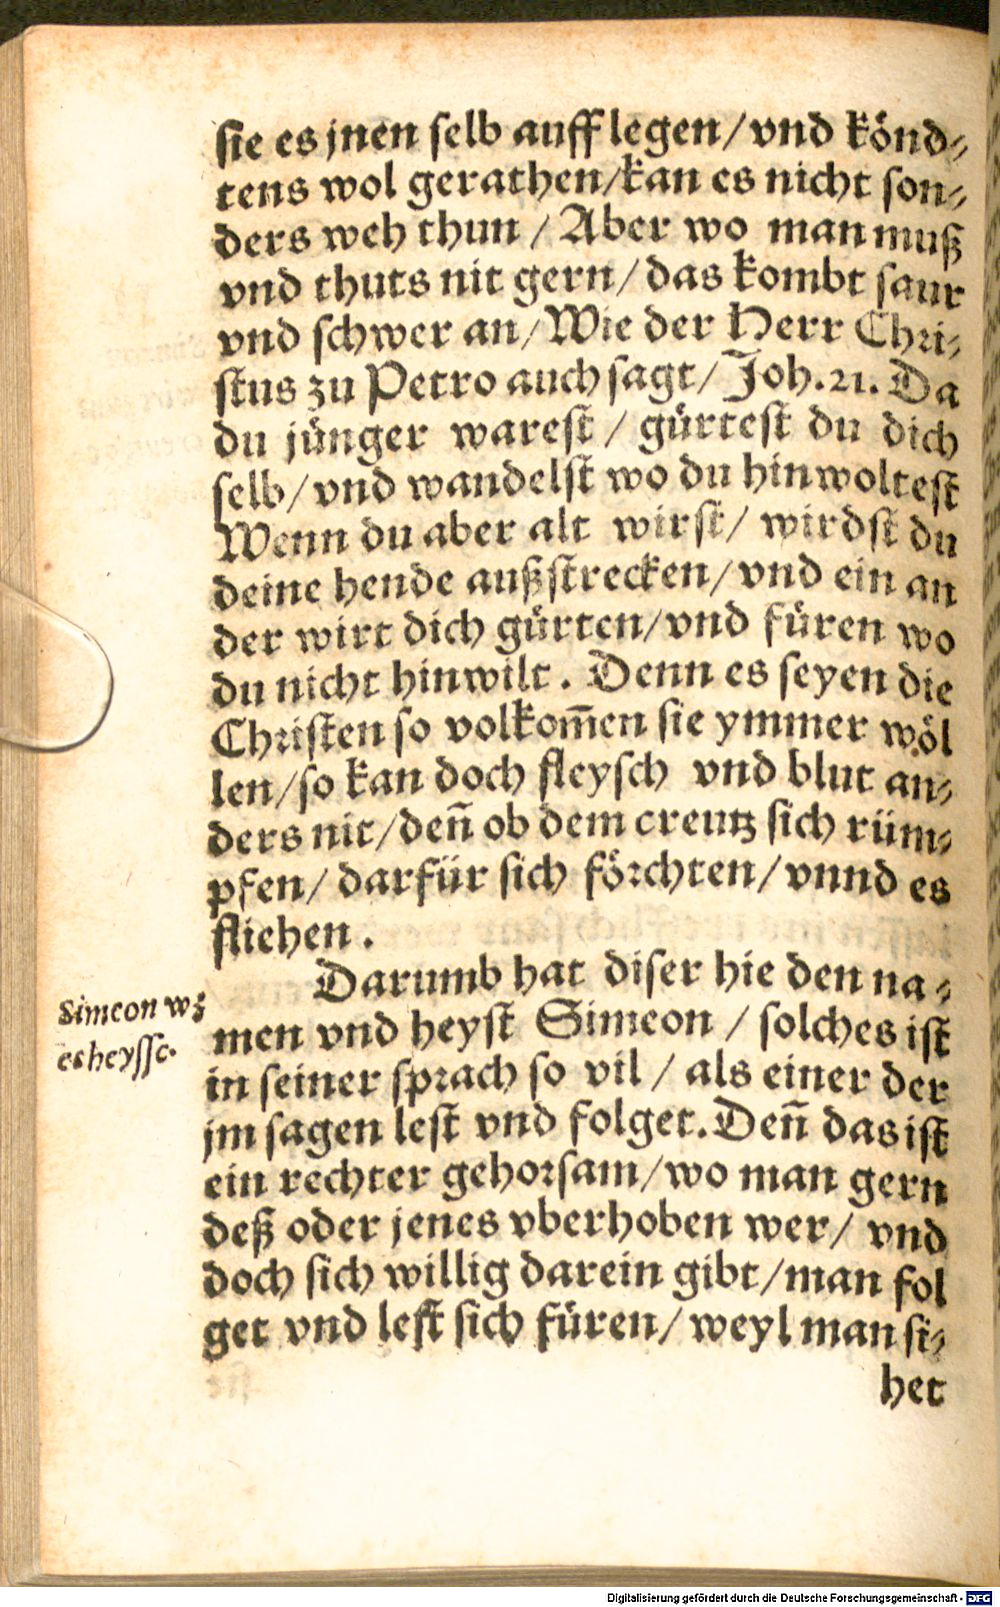 sie es jnen selb auff legen/ vnd könd⸗
tens wol gerathen/kan es nicht son⸗
ders weh thun / Aber wo man muß
vnd thuts nit gern/ das kombt saur
vnd schwer an/ Wie der Herr Chri⸗
stus zu Petro auch sagt/ Joh. 21. Da
du jünger warest / gürtest du dich
selb/ vnd wandelst wo du hin woltest
Wenn du aber alt wirst/ wirdst du
deine hende außstrecken/ vnd ein an
der wirt dich gürten/ vnd füren wo
du nicht hin wilt. Denn es seyen die
Christen so volkom̄en sie ymmer wöl
len/ so kan doch fleysch vnd blut an⸗
ders nit/ den̄ ob dem creutz sich rüm⸗
pfen/ darfür sich förchten/ vnnd es
fliehen.
Darumb hat diser hie den na⸗
Simeon wz
es heysse.
men vnd heyst Simeon / solches ist
in seiner sprach so vil / als einer der
jm sagen lest vnd folget. Den̄ das ist
ein rechter gehorsam/ wo man gern
deß oder jenes vberhoben wer/ vnd
doch sich willig darein gibt/ man fol
get vnd lest sich füren/ weyl man si⸗
het
Digitalisierung gefördert durch die Deutsche Forschungsgemeinschaft - DFG